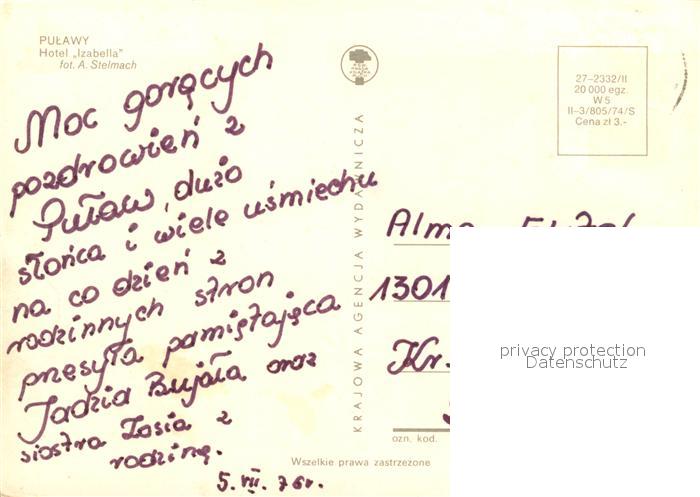 PUŁAWY
Hotel „Izabella”
fot. A. Stelmach
Moc gorących
pozdrowień z
Puław, dużo
słońca i wiele uśmiechu
na co dzień z
rodzinnych stron
przesyła pamiętająca
Jadzia Bujała oraz
siostra Zosia z
rodziną.
5. VII. 76r.
KRAJOWA AGENCJA WYDAWNICZA
27–2332/II
20 000 egz.
W 5
II–3/805/74/S
Cena zł 3.-
1301
Kr.
ozn. kod.
Wszelkie prawa zastrzeżone
privacy protection
Datenschutz